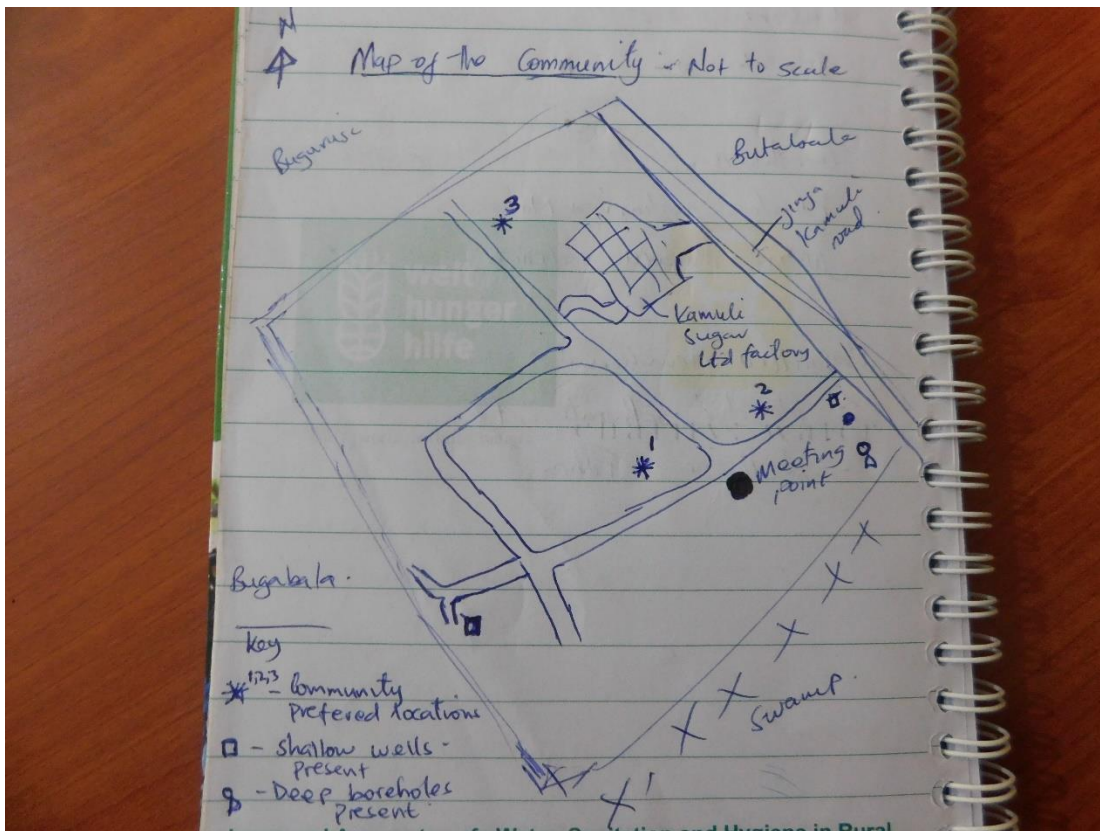 N
Map of the Community - Not to scale
Butabala
Jinja
Kamuli
road
3
welt
hunger
hilfe
Kamuli
sugar
Ltd factory
2
1
Meeting
point
Bugabala.
Key
1,2,3 - Community
prefered locations
- Shallow wells -
present
- Deep boreholes
present.
Swamp.
Water, Sanitation and Hygiene in Rural